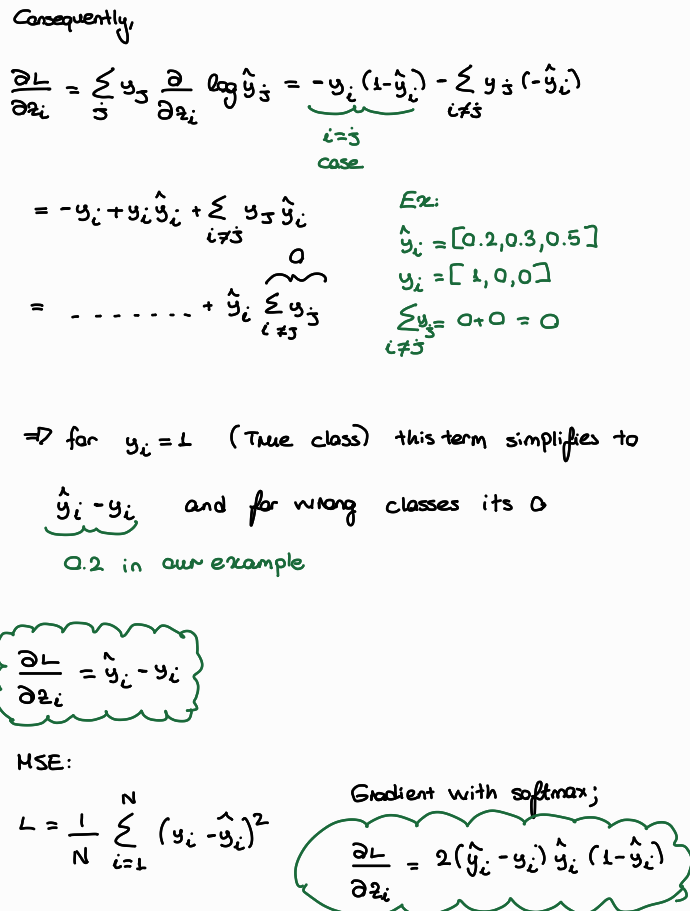 Consequently,
∂L/∂z_i = Σ_j y_j ∂/∂z_i log ŷ_j = -y_i (1-ŷ_i) - Σ_{i≠j} y_j (-ŷ_i)
i=j
case
= -y_i + y_i ŷ_i + Σ_{i≠j} y_j ŷ_i
Ex:
ŷ_i = [0.2,0.3,0.5]
y_i = [1,0,0]
Σ_{i≠j} y_j = 0+0 = 0
0
= - - - - - - - + ŷ_i Σ_{i≠j} y_j
⇒ for y_i = 1 (True class) this term simplifies to
ŷ_i - y_i and for wrong classes its 0
0.2 in our example
∂L/∂z_i = ŷ_i - y_i
MSE:
L = 1/N Σ_{i=1}^{N} (y_i - ŷ_i)^2
Gradient with softmax;
∂L/∂z_i = 2(ŷ_i - y_i) ŷ_i (1-ŷ_i)